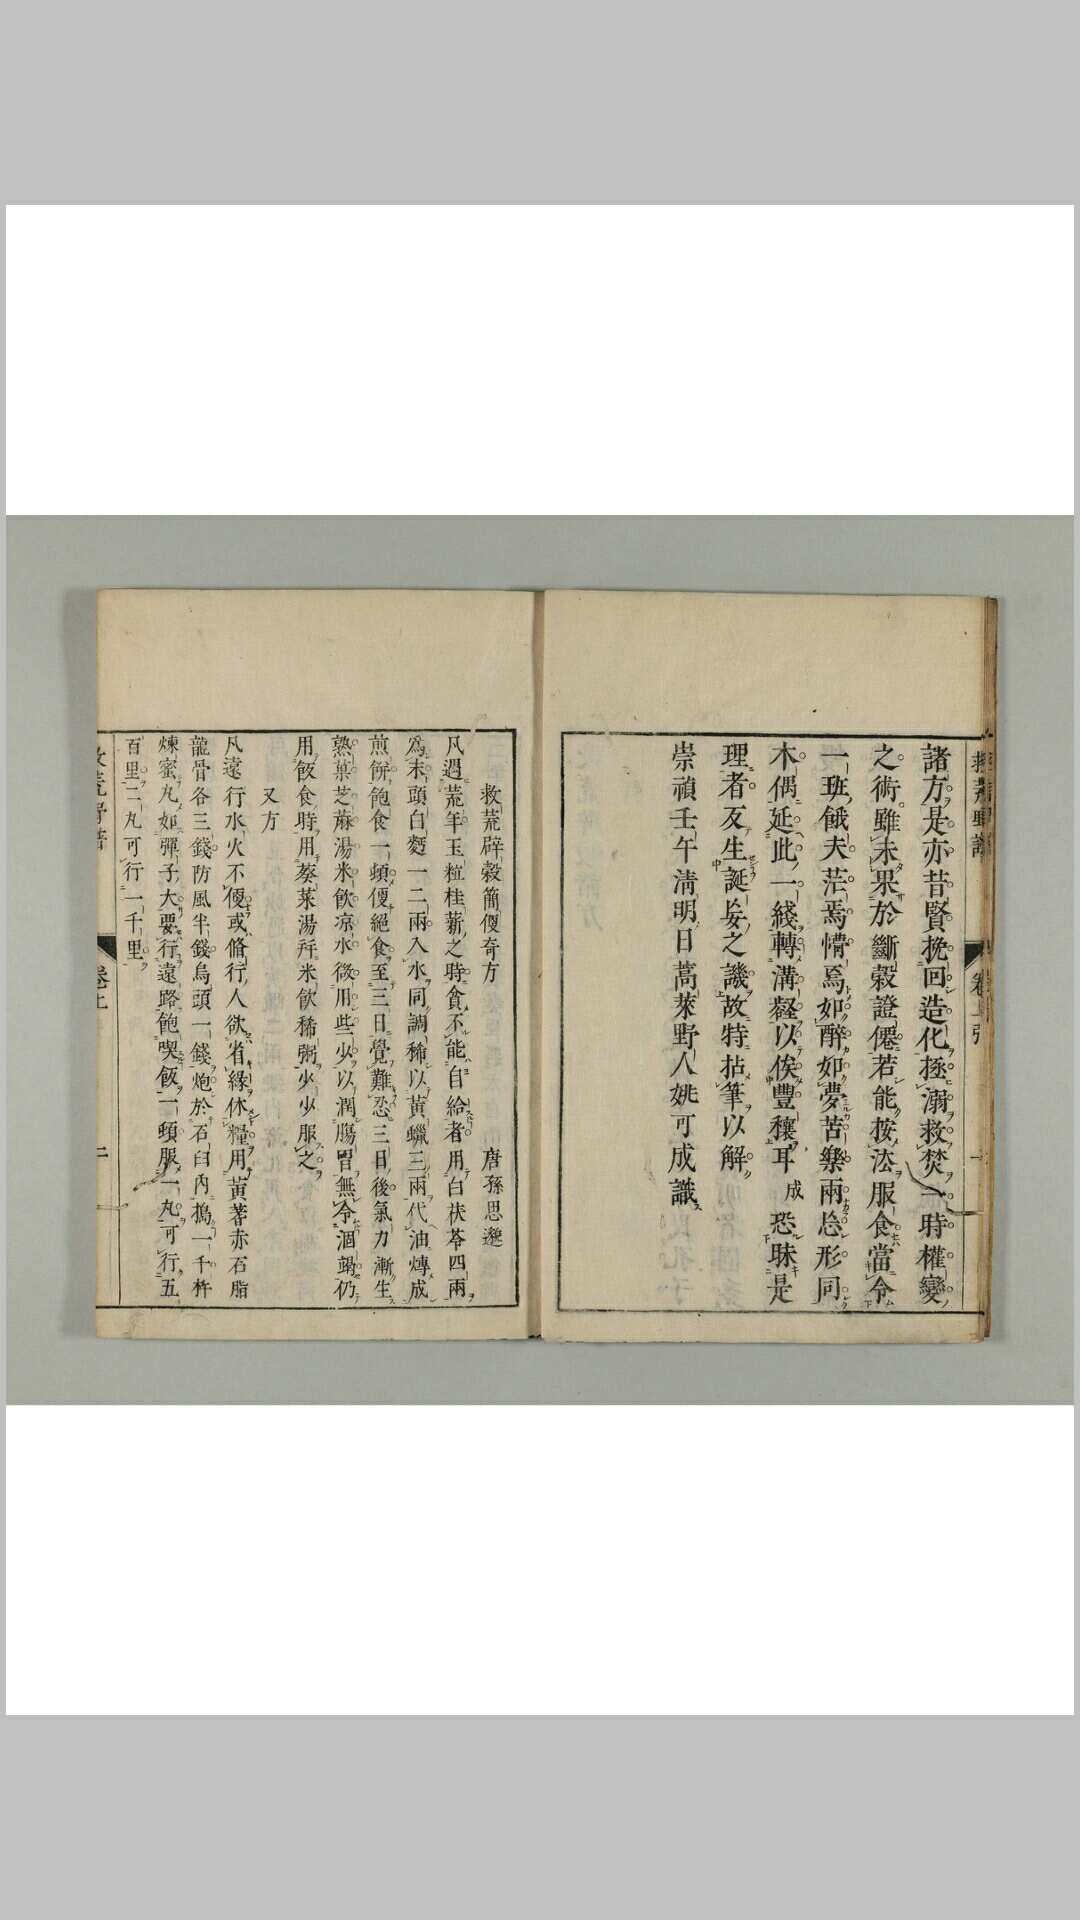 諸方是亦昔賢挽回造化拯溺救焚一時權變
之術雖未果於斷穀證僊若能按法服食當令
一班餓夫茫焉惰焉如醉如夢苦樂兩忘形同
木偶延此一綫轉溝壑以俟豐穰耳成恐昧是
理者反生誕妄之譏故特拈筆以解
崇禎壬午清明日蒿萊野人姚可成識
救荒辟穀簡便奇方 唐孫思邈
凡遇荒年玉粒桂薪之時貪不能自給者用白茯苓四兩
為末頭白麪一二兩入水同調稀以黃蠟三兩代油煿成
煎餅飽食一頓便絕食至三日覺難忍三日後氣力漸生
熟菓芝蔴湯米飲涼水微用些少以潤腸胃無令涸竭仍
用飯食時用葵菜湯并米飲稀粥少少服之
又方
凡遠行水火不便或脩行人欲省緣休糧用黃蓍赤石脂
龍骨各三錢防風半錢烏頭一錢炮於石臼內搗一千杵
煉蜜丸如彈子大要行遠路飽喫飯一頓服一丸可行五
百里二丸可行一千里
卷上 二